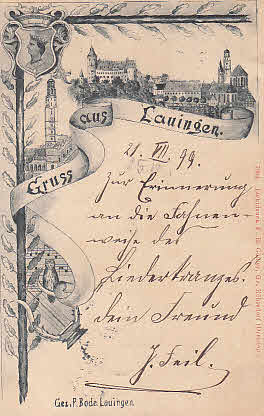 Gruss aus Lauingen.
21. VII. 99.
Zur Erinnerung
an die Fahnen-
weihe des
Liederkranzes.
dein Freund
J. Feil.
Gez. P. Bode. Lauingen.